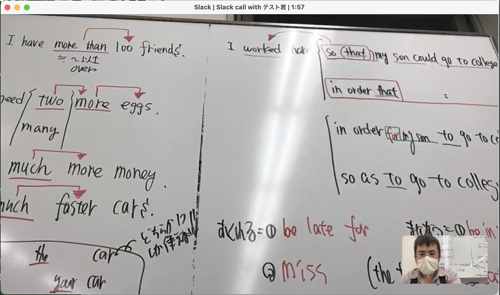 Slack | Slack call with テスト君 | 1:57
I have more than 100 friends.
≒ ~以上
over
need two more eggs.
many
much more money.
much faster cars.
the car
your car
I worked hard so (that) my son could go to college
in order that
in order for my son to go to co
so as to go to colleg
おくれる = ① be late for
② miss (the t
= ① be in